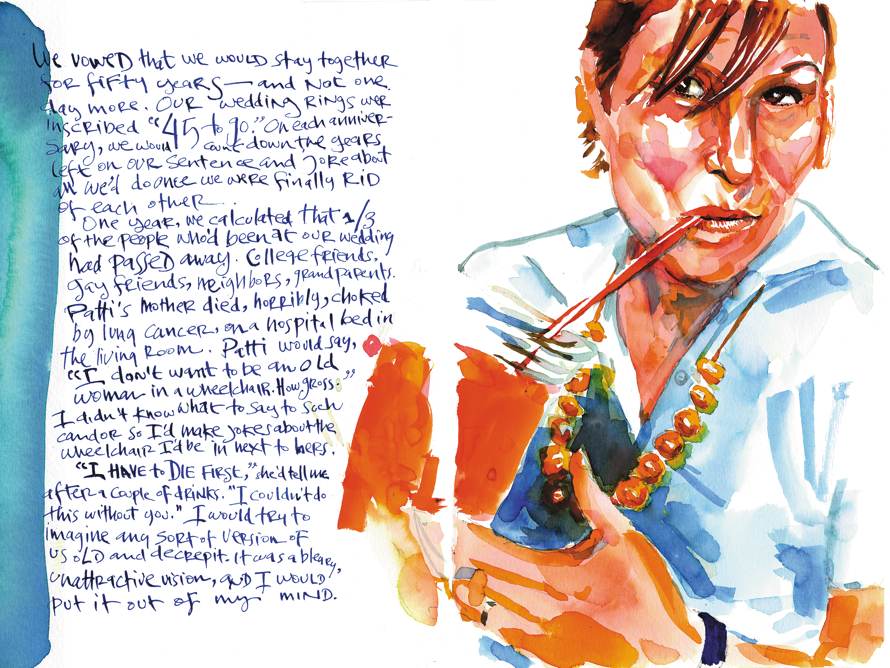 We vowed that we would stay together
for fifty years — and not one
day more. Our wedding rings were
inscribed "45 to go." On each anniver-
sary, we would count down the years
left on our sentence and joke about
all we'd do once we were finally rid
of each other...
One year, we calculated that 1/3
of the people who'd been at our wedding
had passed away. College friends,
gay friends, neighbors, grandparents.
Patti's mother died, horribly, choked
by lung cancer, on a hospital bed in
the living room. Patti would say,
"I don't want to be an old
woman in a wheelchair. How gross."
I didn't know what to say to such
candor so I'd make jokes about the
wheelchair I'd be in next to hers.
"I HAVE to DIE FIRST," she'd tell me
after a couple of drinks. "I couldn't do
this without you." I would try to
imagine any sort of version of
us old and decrepit. It was a bleary,
unattractive vision, and I would
put it out of my mind.